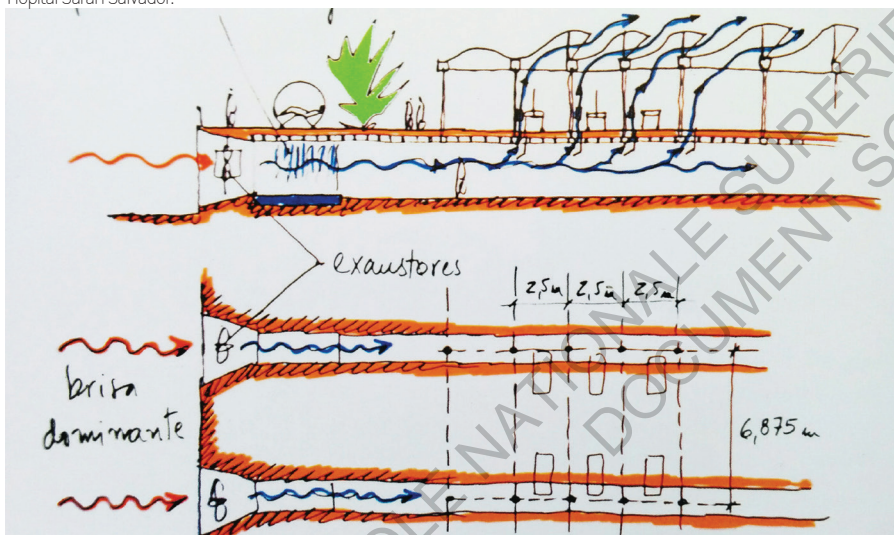 Hôpital Sarah Salvador.
exaustores
2,5m 2,5m 2,5m
brisa
dominante
6,875 m
ECOLE NATIONALE SUPERIE
DOCUMENT SO